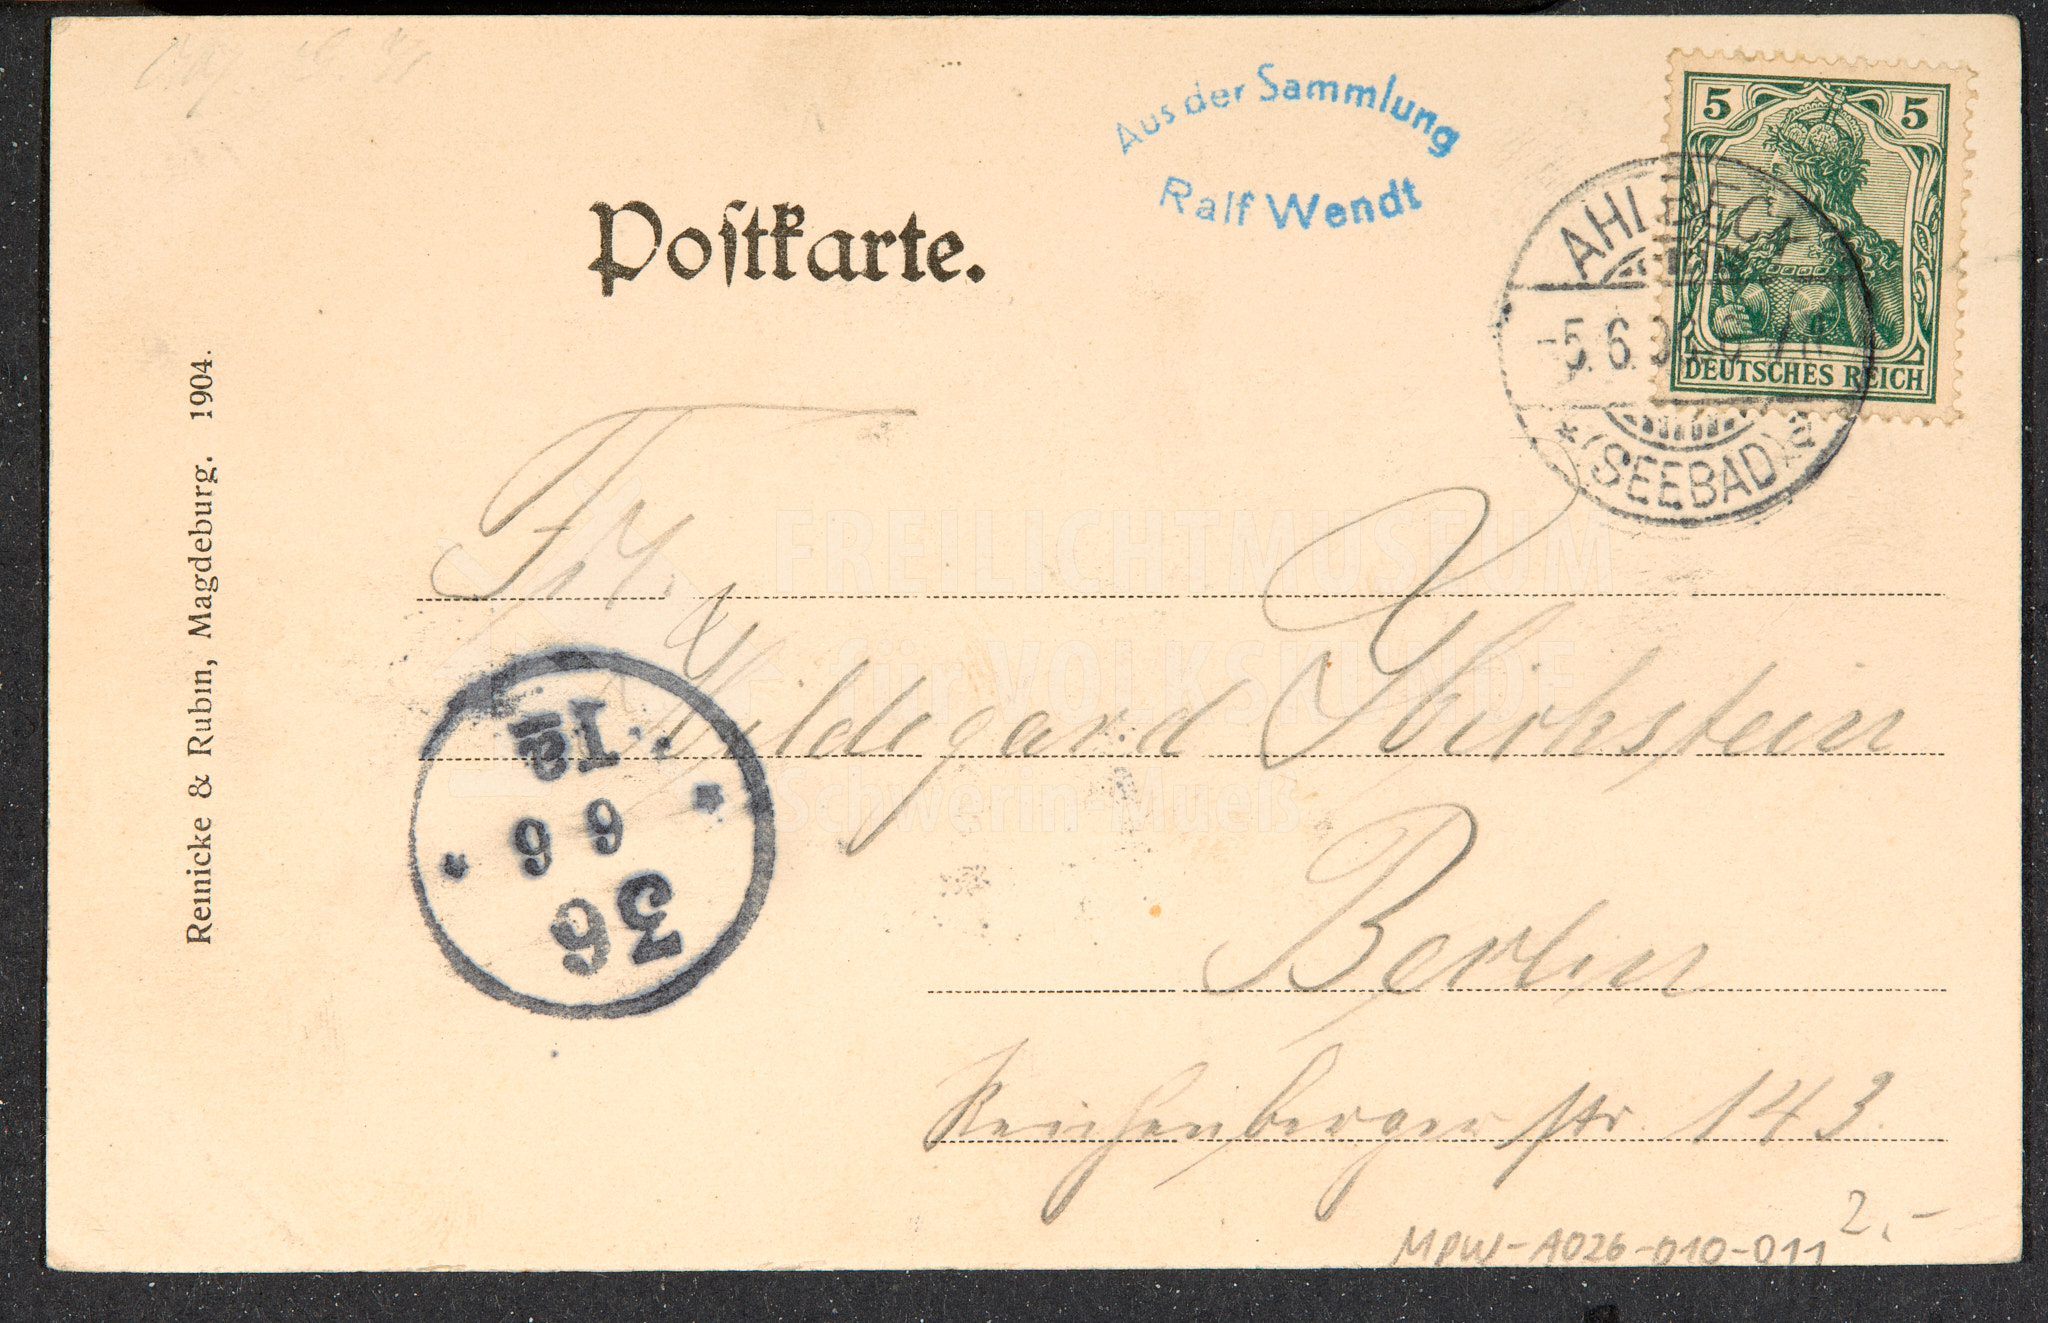 Aus der Sammlung
Ralf Wendt
5 5
DEUTSCHES REICH
AHLBECK
-5.6.
* (SEEBAD) a
Postkarte.
Reinicke & Rubin, Magdeburg. 1904.
Frl.
Hildegard
Berlin
Reichenbergerstr. 143.
36
6 6
* *
FREILICHTMUSEUM
für VOLKSKUNDE
Schwerin-Mueß
2.-
MPW-A026-010-011